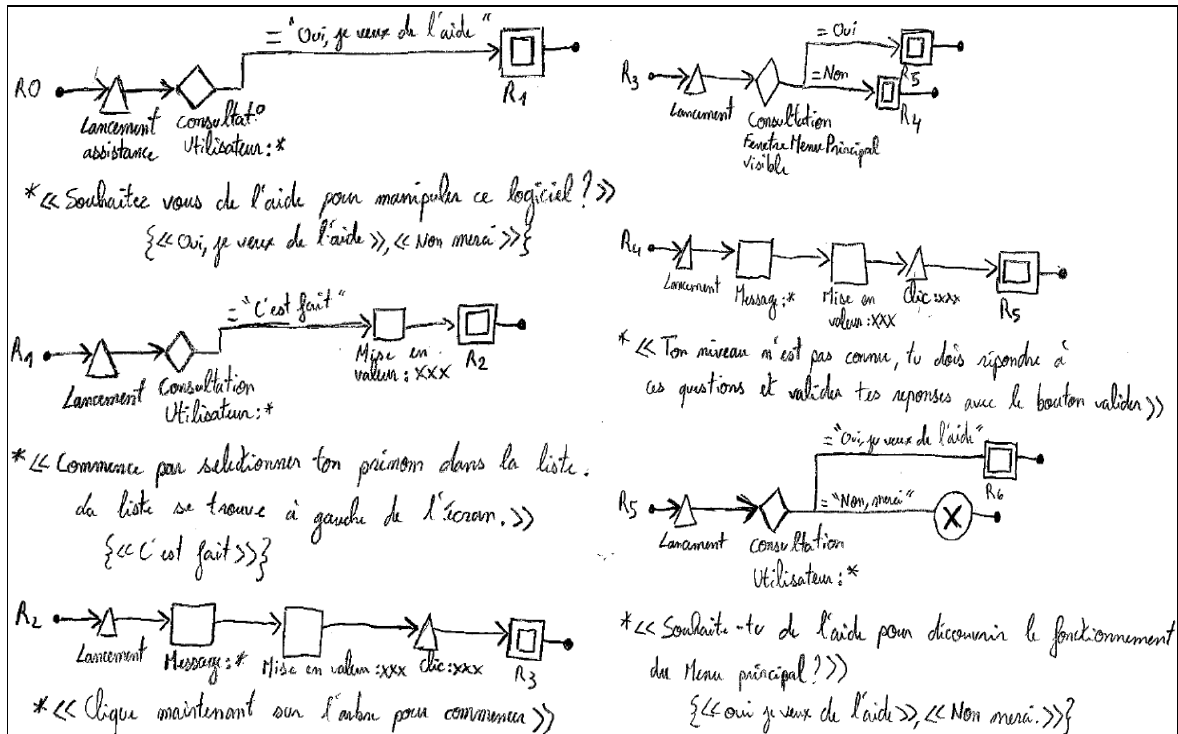 = "Oui, je veux de l'aide"
R0
R1
Lancement
assistance
Consultat°
Utilisateur : *
* << Souhaitez vous de l'aide pour manipuler ce logiciel ? >>
{<< Oui, je veux de l'aide >>, << Non merci >>}
= "C'est fait"
R1
R2
Lancement
Consultation
Utilisateur : *
Mise en
valeur : XXX
* << Commence par selectionner ton prénom dans la liste.
La liste se trouve à gauche de l'écran. >>
{<< C'est fait >>}
R2
Lancement
Message : *
Mise en valeur : xxx
clic : xxx
R3
* << Clique maintenant sur l'arbre pour commencer >>
= Oui
R3
= Non
R5
R4
Lancement
Consultation
Fenetre Menu Principal
visible
R4
Lancement
Message : *
Mise en
valeur : XXX
Clic : xxx
R5
* << Ton niveau n'est pas connu, tu dois répondre à
ces questions et valider tes reponses avec le bouton valider >>
= "Oui, je veux de l'aide"
R6
R5
= "Non, merci"
X
Lancement
Consultation
Utilisateur : *
* << Souhaite-tu de l'aide pour découvrir le fonctionnement
du Menu principal ? >>
{<< oui je veux de l'aide >>, << Non merci. >>}